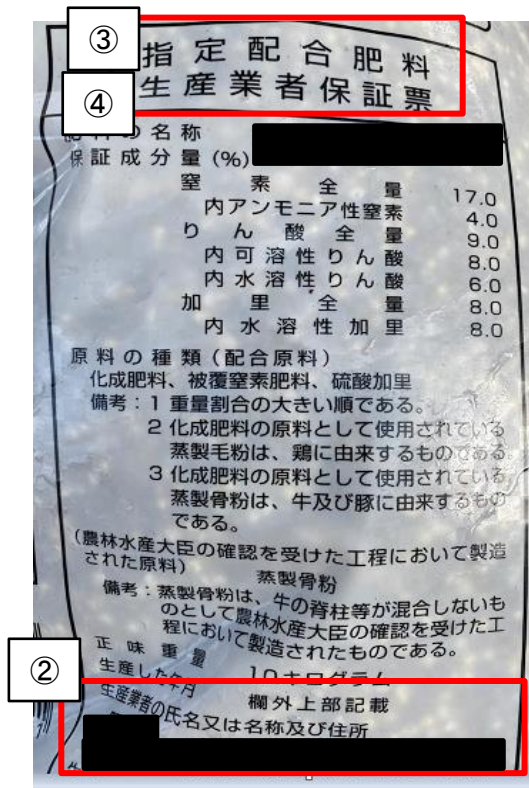 ③
指定配合肥料
④
生産業者保証票
の名称
保証成分量(%)
窒素全量 17.0
内アンモニア性窒素 4.0
りん酸全量 9.0
内可溶性りん酸 8.0
内水溶性りん酸 6.0
加里全量 8.0
内水溶性加里 8.0
原料の種類(配合原料)
化成肥料、被覆窒素肥料、硫酸加里
備考:1 重量割合の大きい順である。
2 化成肥料の原料として使用されている
蒸製毛粉は、鶏に由来するものである
3 化成肥料の原料として使用されている
蒸製骨粉は、牛及び豚に由来するもの
である。
(農林水産大臣の確認を受けた工程において製造
された原料)
蒸製骨粉
備考:蒸製骨粉は、牛の脊柱等が混合しないも
のとして農林水産大臣の確認を受けた工
程において製造されたものである。
正味重量 10キログラム
②
生産した年月 欄外上部記載
生産業者の氏名又は名称及び住所